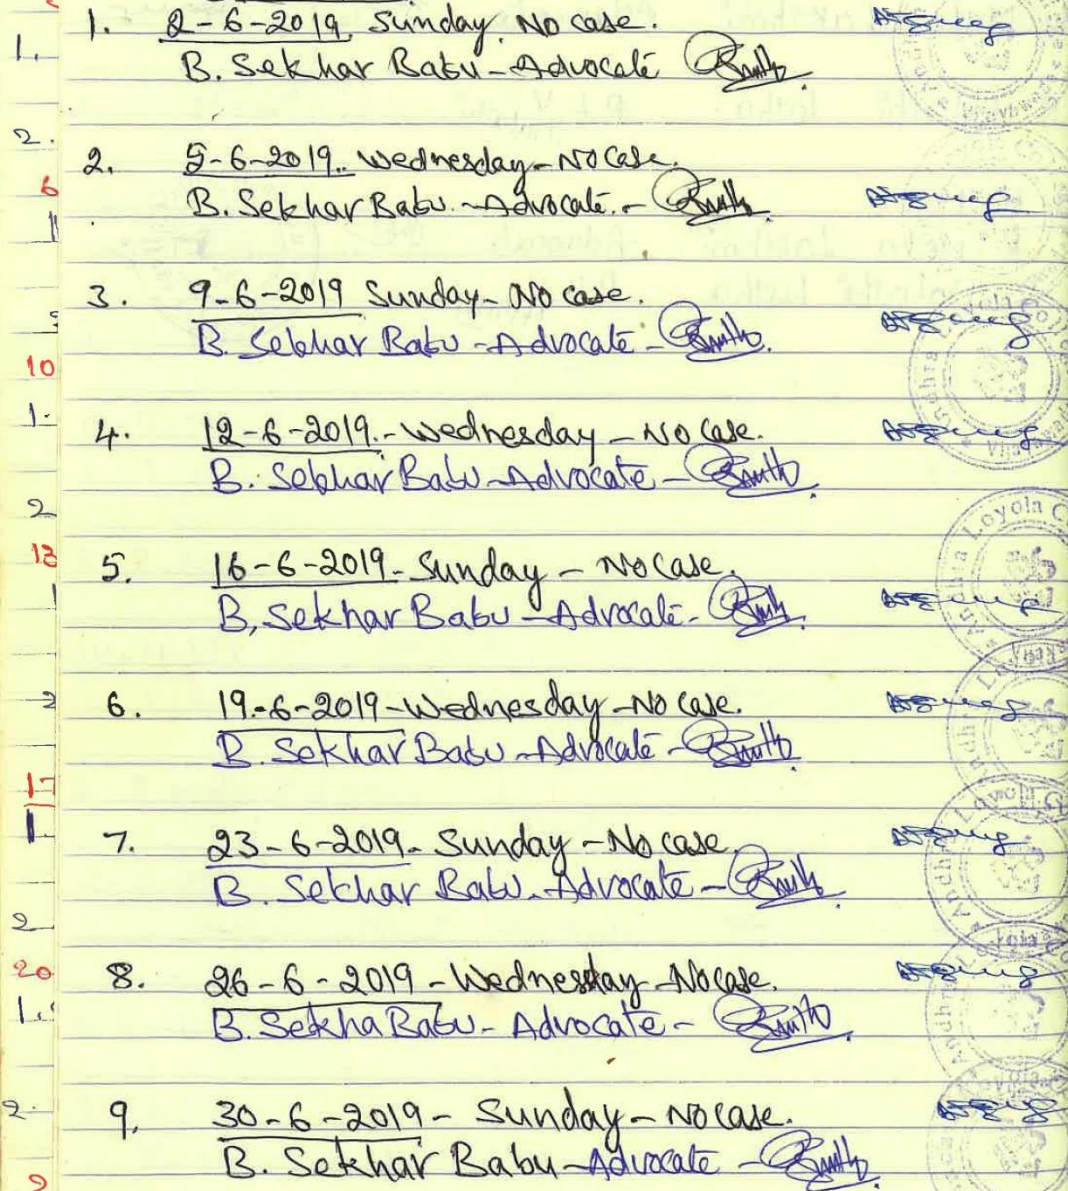 1. 2-6-2019, Sunday. No case.
B. Sekhar Babu - Advocate
2. 5-6-2019.. Wednesday - No Case.
B. Sekhar Babu. - Advocate. -
3. 9-6-2019 Sunday - No case.
B. Sekhar Babu - Advocate -
4. 12-6-2019. - Wednesday - No Case.
B. Sekhar Babu - Advocate -
5. 16-6-2019 - Sunday - No Case.
B, Sekhar Babu - Advocate -
6. 19-6-2019 - Wednesday - No Case.
B. Sekhar Babu - Advocate -
7. 23-6-2019 - Sunday - No case.
B. Sekhar Babu - Advocate -
8. 26-6-2019 - Wednesday - No case.
B. Sekha Babu - Advocate -
9. 30-6-2019 - Sunday - No case.
B. Sekhar Babu - Advocate -
Andhra Loyola